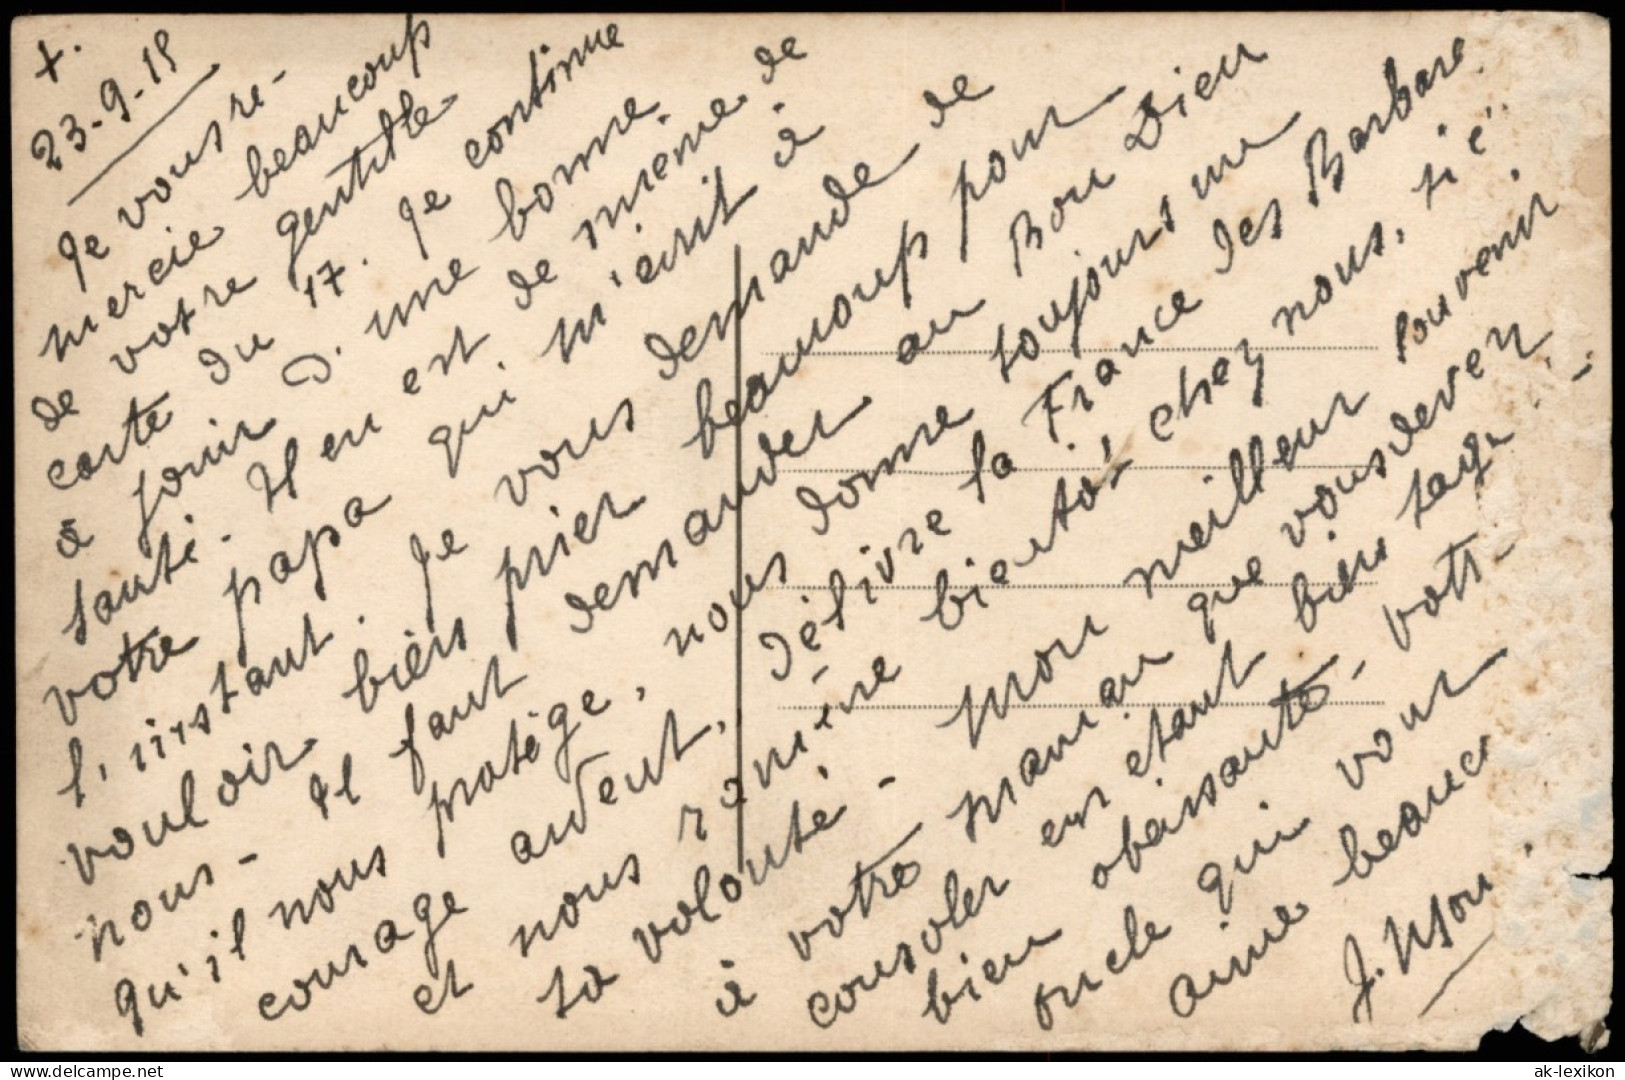 +.
23-9-15
Je vous re-
mercie beaucoup
de votre gentille
carte du 17. Je continue
à jouir d'une bonne
santé. Il en est de même de
votre papa qui m'écrit à
l'instant. Je vous demande de
vouloir bien prier beaucoup pour
nous- Il faut demander au Bon Dieu
qu'il nous protège, nous donne toujours un
courage ardent, délivre la France des Barbares
et nous ramène bientôt chez nous, si c'
sa volonté- Mon meilleur souvenir
à votre maman que vous devez
consoler en étant bien sage
bien obéissante- Votr-
oncle qui vour
aime beauc
J.
www.delcampe.net
ak-lexikon